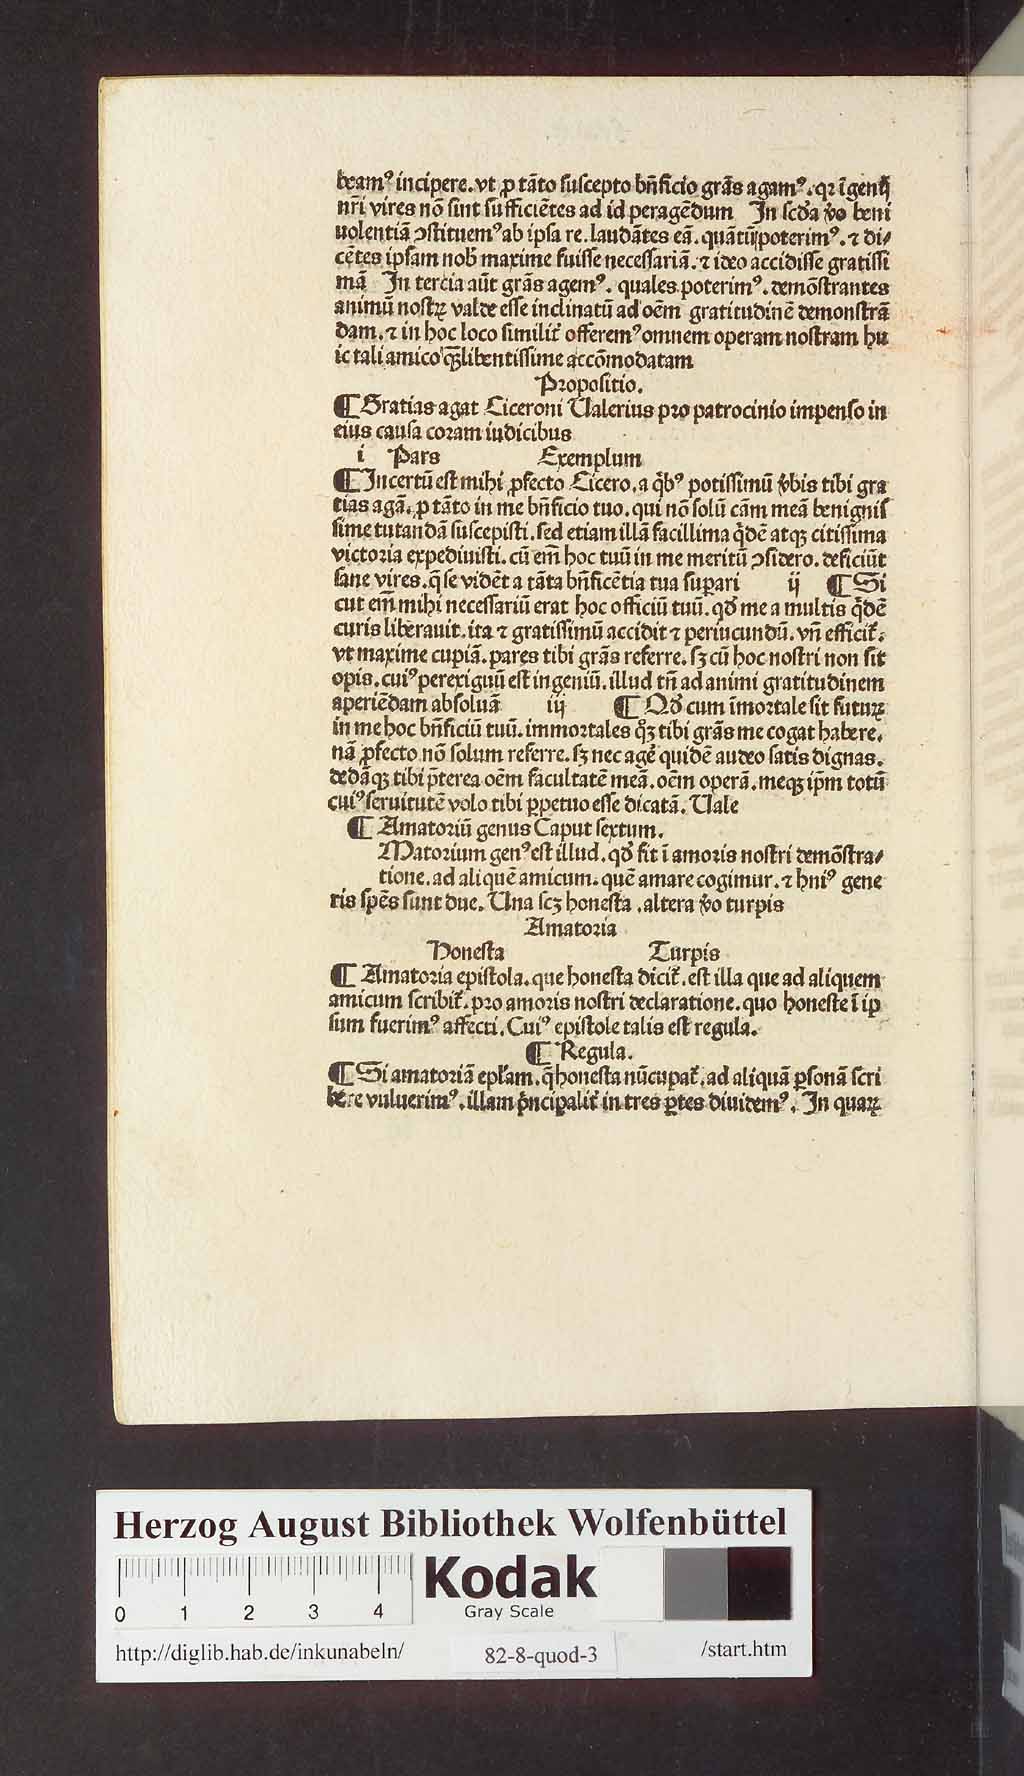 beamꝰ incipere. vt ꝓ tāto suscepto bn̄ficio grās agamꝰ. qꝛ īgenij
nr̄i vires nō sint sufficiētes ad id peragēdum In scd̄a v̄o beni
uolentiā ꝯstituemꝰ ab ipsa re. laudātes eā. quātū poterimꝰ. ⁊ di⸗
cētes ipsam nob̄ maxime fuisse necessariā. ⁊ ideo accidisse gratissi
mā In tercia aūt grās agemꝰ. quales poterimꝰ. demōstrantes
animū nostrꝝ valde esse inclinatū ad oēm gratitudinē demonstrā
dam. ⁊ in hoc loco similit̄ offeremꝰ omnem operam nostram hu
ic tali amico ꝙ̄libentissime accōmodatam
Propositio.
¶ Gratias agat Ciceroni Ualerius pro patrocinio impenso in
eius causa coram iudicibus
i Pars Exemplum
¶ Incertū est mihi ꝓfecto Cicero. a q̄bꝰ potissimū v̄bis tibi gra
tias agā. ꝓ tāto in me bn̄ficio tuo. qui nō solū cām meā benignis
sime tutandā suscepisti. sed etiam illā facillima q̄dē atqꝫ citissima
victoria expediuisti. cū em̄ hoc tuū in me meritū ꝯsidero. deficiūt
sane vires. q̄ se vidēt a tāta bn̄ficētia tua suꝑari ij ¶ Si
cut em̄ mihi necessariū erat hoc officiū tuū. qd̄ me a multis q̄dē
curis liberauit. ita ⁊ gratissimū accidit ⁊ periucundū. vn̄ efficit̄.
vt maxime cupiā. pares tibi grās referre. sꝫ cū hoc nostri non sit
opis. cuiꝰ perexiguū est ingeniū. illud tn̄ ad animi gratitudinem
aperiēdam absoluā iij ¶ Qd̄ cum īmortale sit futurꝝ
in me hoc bn̄ficiū tuū. immortales qꝫ tibi grās me cogat habere.
nā ꝓfecto nō solum referre. sꝫ nec agē quidē audeo satis dignas.
dedāqꝫ tibi p̄terea oēm facultatē meā. oēm operā. meqꝫ ip̄m totū
cuiꝰ seruitutē volo tibi ꝑpetuo esse dicatā. Uale
¶ Amatoriū genus Caput sextum.
Matorium genꝰ est illud. qd̄ fit ī amoris nostri demōstra⸗
tione. ad aliquē amicum. quē amare cogimur. ⁊ hniꝰ gene
ris spēs sunt due. Una scꝫ honesta. altera v̄o turpis
Amatoria
Honesta Turpis
¶ Amatoria epistola. que honesta dicit̄. est illa que ad aliquem
amicum scribit̄. pro amoris nostri declaratione. quo honeste ī ip
sum fuerimꝰ affecti. Cuiꝰ epistole talis est regula.
¶ Regula.
¶ Si amatoriā epl̄am. q̄ honesta nūcupat̄. ad aliquā ꝑsonā scri
bere vuluerimꝰ. illam p̄ncipalit̄ in tres ꝑtes diuidemꝰ. In quaꝝ
Herzog August Bibliothek Wolfenbüttel
0 1 2 3 4
Kodak
Gray Scale
http://diglib.hab.de/inkunabeln/ 82-8-quod-3 /start.htm